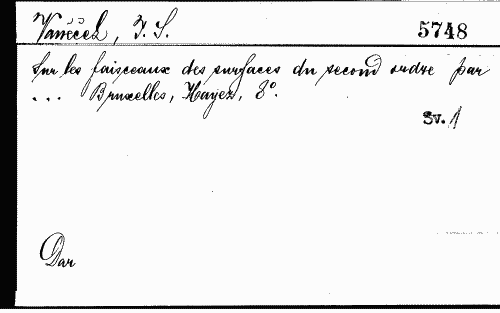 Vaněček, J. S. 5748
Sur les faisceaux des surfaces du second ordre par
... Bruxelles, Hayez, 8°.
Sv. 1
Dar